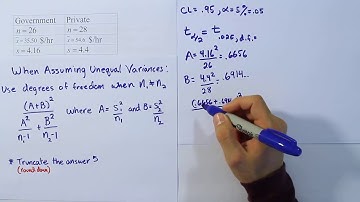 Government Private
n = 26 n = 28
x̄ = 35.50 $/hr x̄ = 54.6 $/hr
s = 4.16 s = 4.4
When Assuming Unequal Variances:
Use degrees of freedom when n₁ ≠ n₂
(A+B)²
A²/n₁-1 + B²/n₂-1 where A = s₁²/n₁ and B = s₂²/n₂
* Truncate the answer
(round down)
CL = .95, α = 5% = .05
t α/2 = t .025, d.f.=
A = 4.16²/26 = .6656
B = 4.4²/28 = .6914...
(.6656 + .6914)²